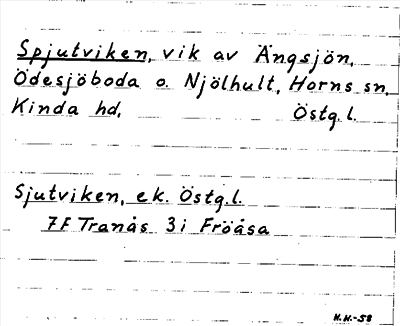 Spjutviken, vik av Ängsjön,
Ödesjöboda o. Njölhult, Horns sn,
Kinda hd, Östg.l.
Sjutviken, ek. Östg.l.
7F Tranås 3i Fröåsa
H.H.-58